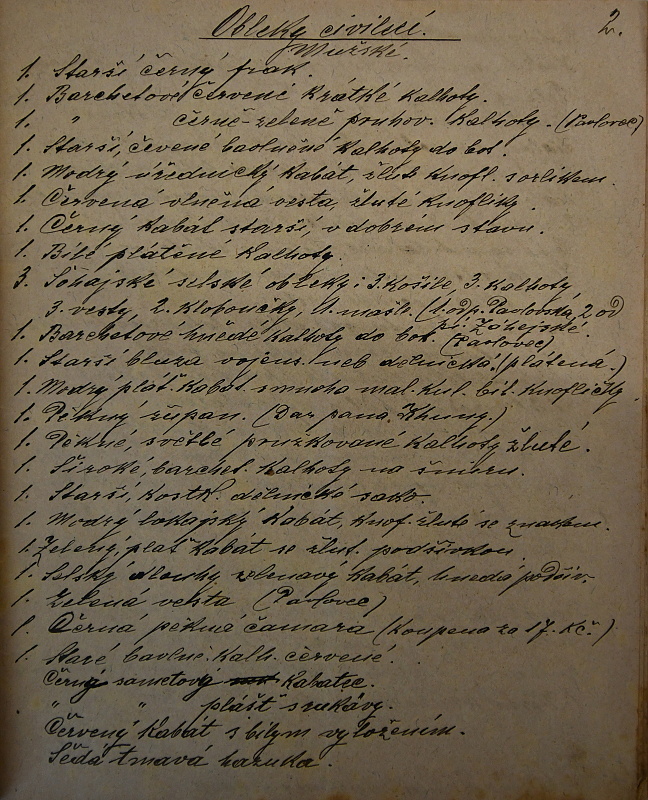 Obleky civilní. 2.
Mužské.
1. Starší černý frak.
1. Barchetové červené krátké kalhoty.
1. " černě-zelené pruhov. kalhoty. (Pavlovec)
1. Starší, čevené bavlněné kalhoty do bot.
1. Modrý úřednický kabát, žluté knofl. s orlíkem.
1. Červená vlněná vesta, žluté knoflíky.
1. Černý kabát starší, v dobrém stavu.
1. Bílé plátěné kalhoty.
3. Šohajské selské obleky: 3. košile, 3. kalhoty,
3. vesty, 2. kloboučky, 1. mašli. (1. od p. Pavlovská, 2 od
1. Barchetové hnědé kalhoty do bot. (Pavlovec)
1. Starší bluza vojens. neb dělnická. (plátěná.)
1. Modrý plát. kabát s mnoha mal. kul. bíl. knoflíčky.
1. Pěkný župan. (Dar pana Khuny.)
1. Pěkné, světlé pružkované kalhoty žluté.
1. Široké, barchet. kalhoty na šněru.
1. Starší, kostk. dělnické sako.
1. Modrý lokajský kabát, knof. žluté se znakem.
1. Zelený, plát kabát se žlut. podšívkou.
1. Selský dlouhý, zelenavý kabát, hnedá podšív.
1. Zelená vesta (Pavlovec)
1. Černá pěkná čamara (Koupena za 17. Kč.)
1. Staré bavlně. kalh. červené.
Černý sametový kabatec.
" " plášt s rukávy.
Červený kabát s bílym vyložením.
Šedá tmavá kazuka.